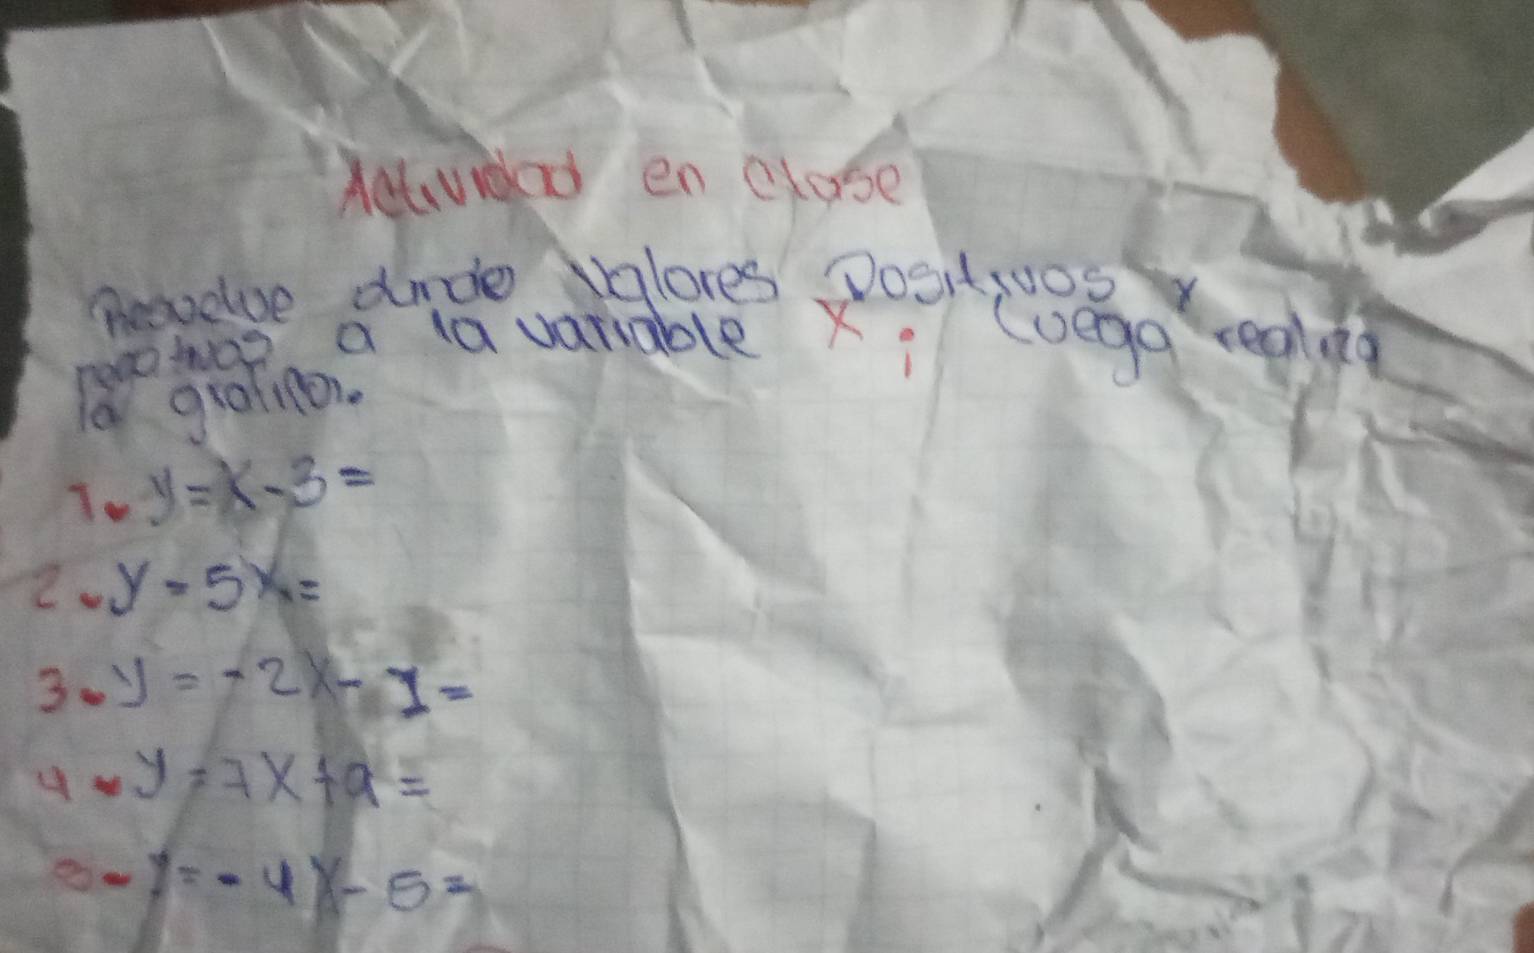 Actividad en clase
Resuelve dando valores positivos y
negativos a la variable x; luego realiza
la grafica.
1. y = x - 3 =
2. y = 5x =
3. y = -2x - 1 =
4. y = 7x + 9 =
5- y = - 4x - 5 =